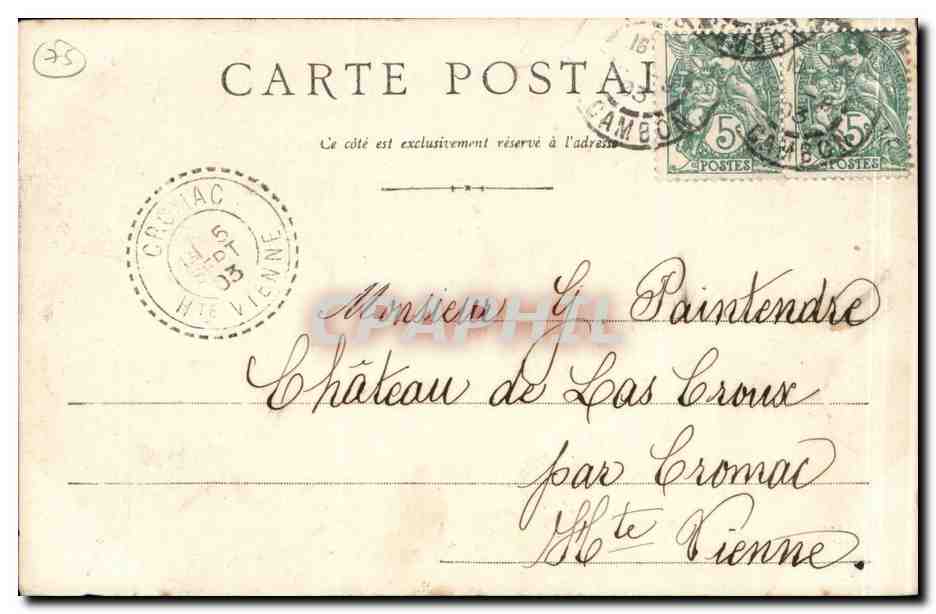 75
CARTE POSTAL
Ce côté est exclusivement réservé à l'adresse
16
03
CAMBON
5c
POSTES
CAMBON
03
CAMBON
5c
POSTES
CROMAC
5
SEPT
03
HTE VIENNE
CPAPHIL
Monsieur G Paintendre
Château de Las Croux
par Cromac
Hte Vienne.